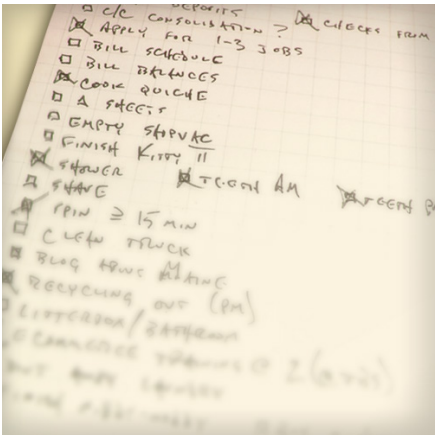 DEPOSITS
C/C CONSOLIDATION? CHECKS FROM
APPLY FOR 1-3 JOBS
BILL SCHEDULE
BILL BALANCES
COOK QUICHE
A SHEETS
EMPTY SHOPVAC
FINISH KITTY 11
SHOWER TEETH AM TEETH
SHAVE
SPIN ≥ 15 MIN
CLEAN TRUCK
BLOG MAINE
RECYCLING OUT (PM)
LITTERBOX/BATHROOM